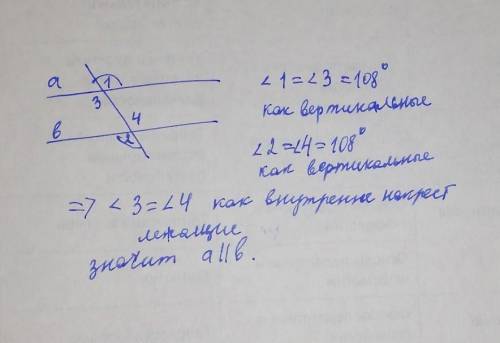 a
1
3
4
в
2
∠1=∠3=108°
как вертикальные
∠2=∠4=108°
как вертикальные
=> ∠3=∠4 как внутренне накрест
лежащие
значит a||в.